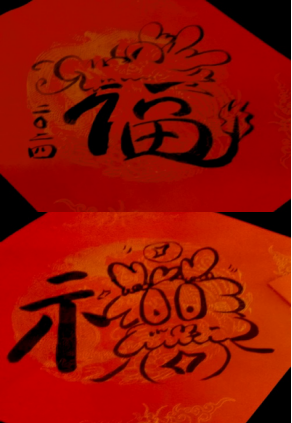 福
二〇二四
示